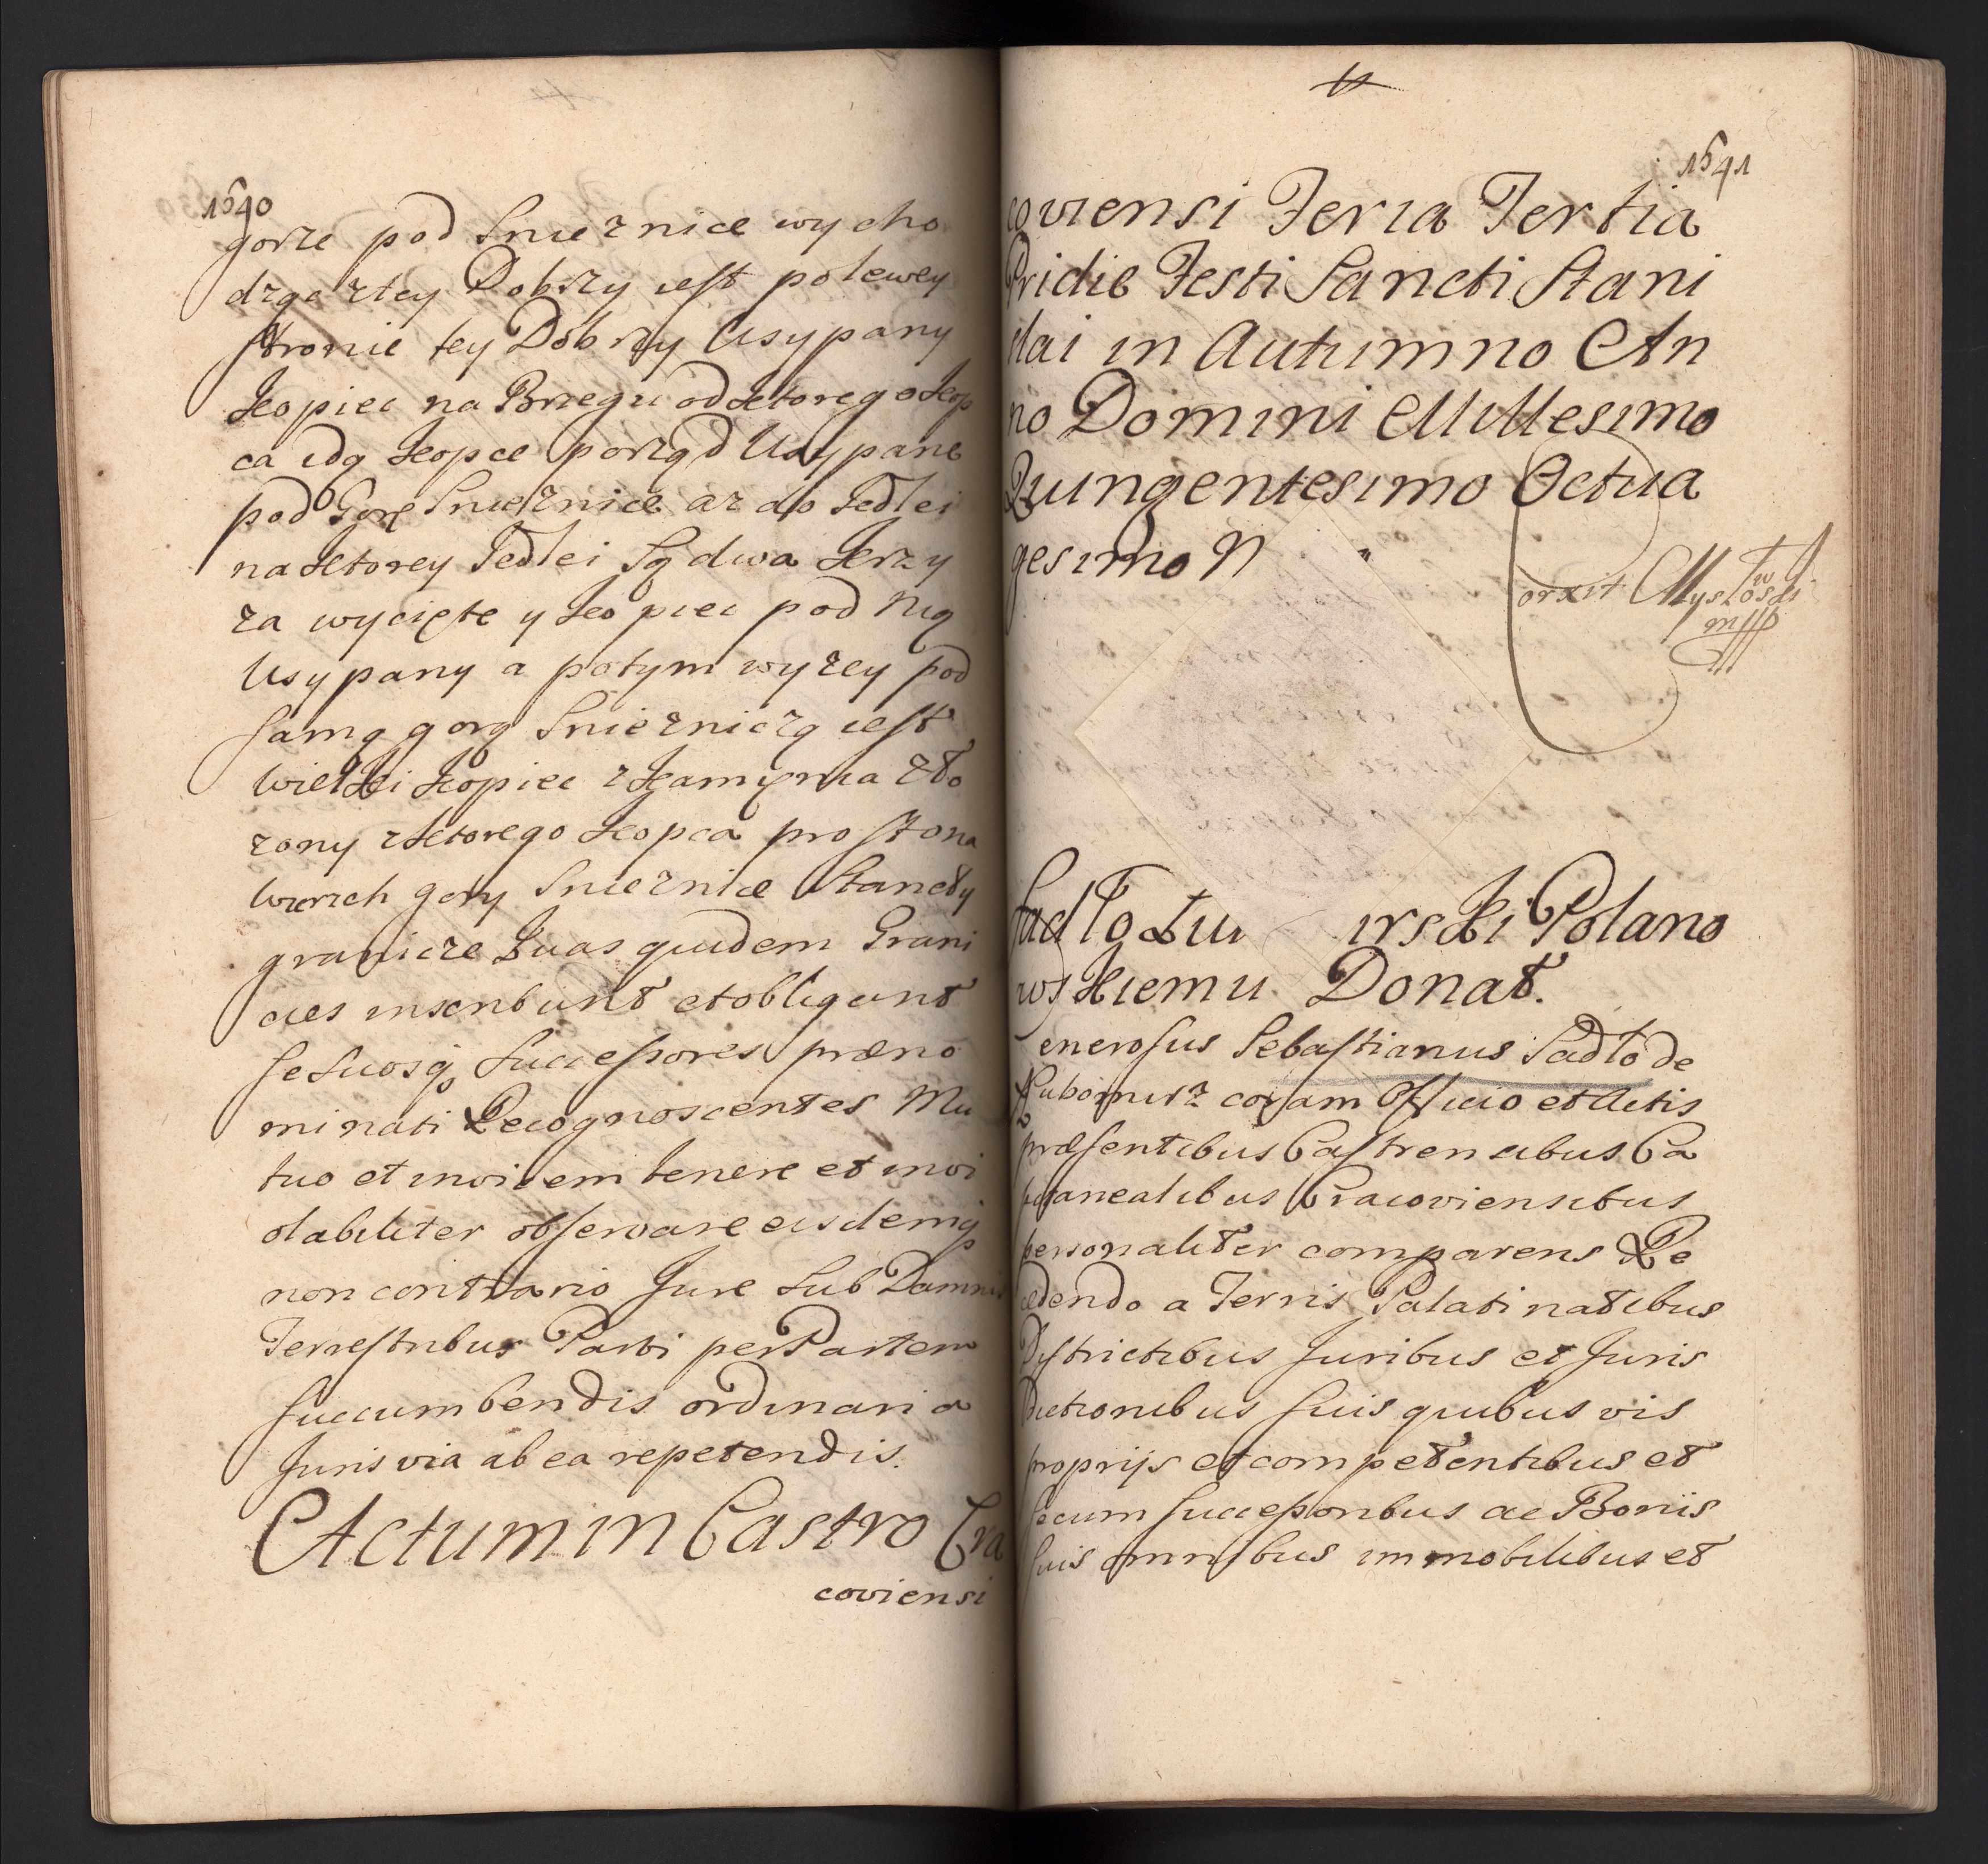 1640
gorze pod Snieznice wycho
dzące z tey Dobrzy iest po lewey
stronie tey Dobrzy Usypany
kopiec na Brzegu od ktorego kop
ca idą kopce porząd Usypane
pod Gorę Snieznice az do Jedlei
na ktorey Jedlei Są dwa krzy
za wycięte y kopiec pod nią
Usypany a potym wyzey pod
samą gorą Sniezniczą iest
wielki kopiec z kamięnia zło
zony z ktorego kopca prosto na
wierzch gory Snieznice Stanęły
granicze quas quidem Grani
cies inscribunt et obligant
se suosq Successores præno
minati Recognoscentes Mu
tuo et invicem tenere et invi
olabiliter observare eisdemq
non contrario Jure Sub Damnis
Terrestribus Parti per Partem
succumbendis ordinaria
Juris via ab ea repetendis.
Actum in Castro Cra
coviensi
1641
coviensi Feria Tertia
Pridie Festi Sancti Stani
slai in Autumno An
no Domini Millesimo
Quingentesimo Octua
gesimo
orxit Mysłowski
mpp
Sadło Lu irski Polano
wskiemu Donat.
enerosus Sebastianus Sadło de
Lubomirz coram Officio et Actis
præsentibus Castrensibus Ca
pitanealibus Cracoviensibus
personaliter comparens Re
cedendo a Terris Palatinatibus
Districtibus Juribus et Juris
dictionibus suis quibus vis
proprijs et competentibus et
secum successoribus ac Bonis
suis omnibus immobilibus et